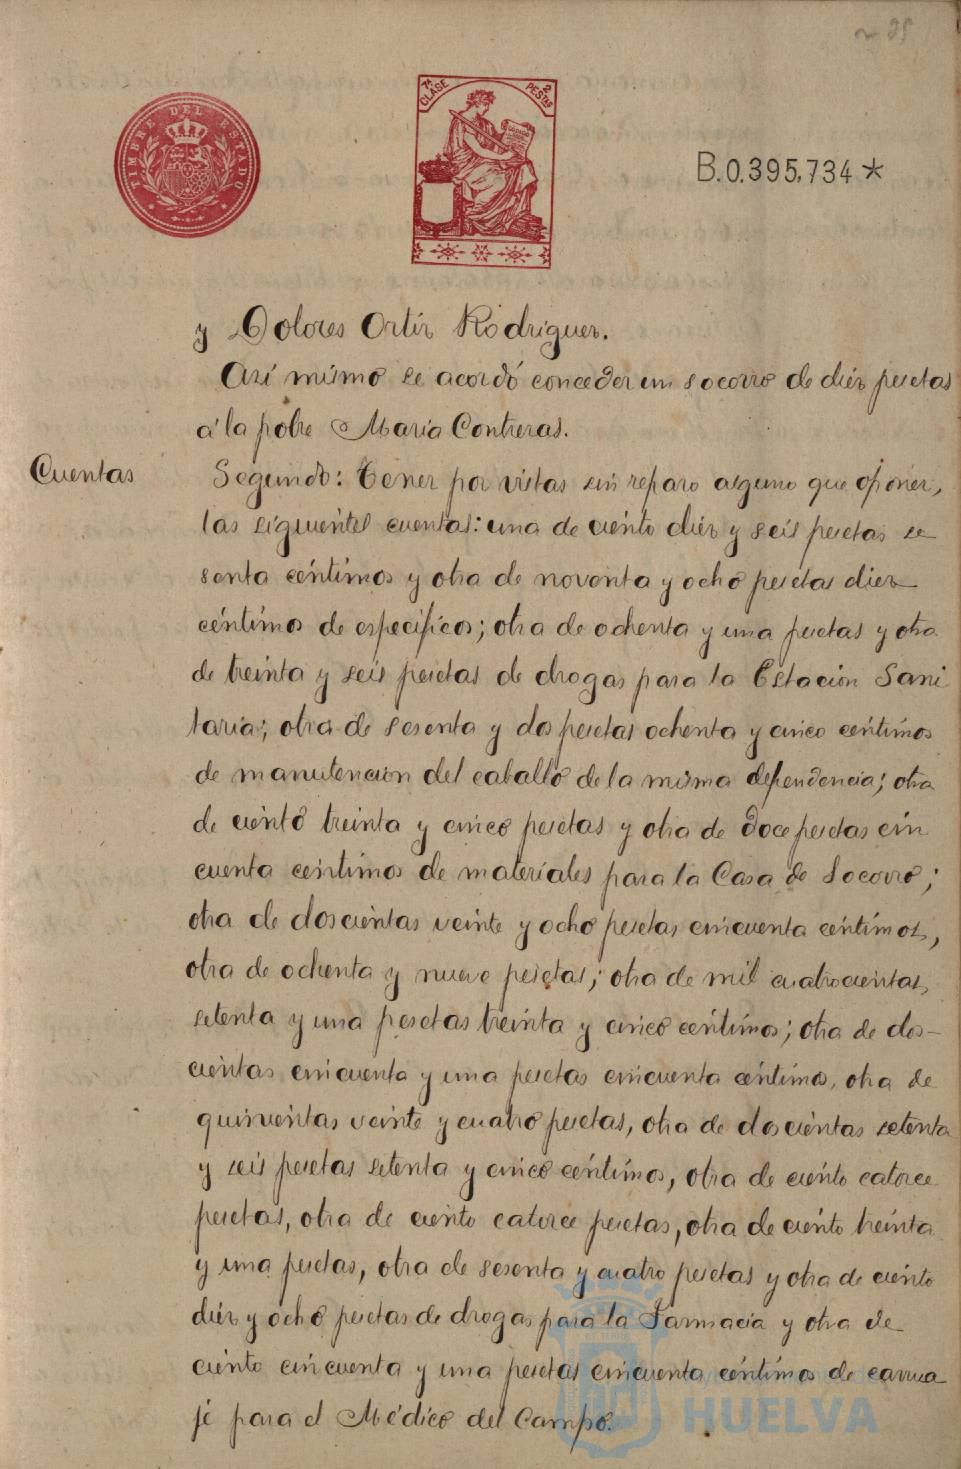 25
TIMBRE DEL ESTADO
7ª CLASE
2 PESTAS
B.0.395.734*
y Dolores Ortíz Rodriguez.
Así mismo se acordó conceder un socorro de diéz pesetas
á la pobre Maria Contreras.
Cuentas
Segundo: Tener por vistas sin reparo alguno que oponer,
las siguientes cuentas: una de ciento diéz y seis pesetas se
senta céntimos y otra de noventa y ocho pesetas diez
céntimos de específicos; otra de ochenta y una pesetas y otra
de treinta y seis pesetas de drogas para la Estacion Sani
taria; otra de sesenta y dos pesetas ochenta y cinco céntimos
de manutencion del caballo de la misma dependencia; otra
de ciento treinta y cinco pesetas y otra de doce pesetas cin
cuenta centimos de materiales para la Casa de Socorro;
otra de doscientas veinte y ocho pesetas cincuenta céntimos,
otra de ochenta y nueve pesetas; otra de mil cuatrocientas
setenta y una pesetas treinta y cinco céntimos; otra de dos-
cientas cincuenta y una pesetas cincuenta céntimos, otra de
quinientas veinte y cuatro pesetas, otra de doscientas setenta
y seis pesetas setenta y cinco céntimos, otra de ciento catorce
pesetas, otra de ciento catorce pesetas, otra de ciento treinta
y una pesetas, otra de sesenta y cuatro pesetas y otra de ciento
diéz y ocho pesetas de drogas para la Farmacia y otra de
ciento cincuenta y una pesetas cincuenta céntimos de carrua
je para el Médico del Campo.
HUELVA